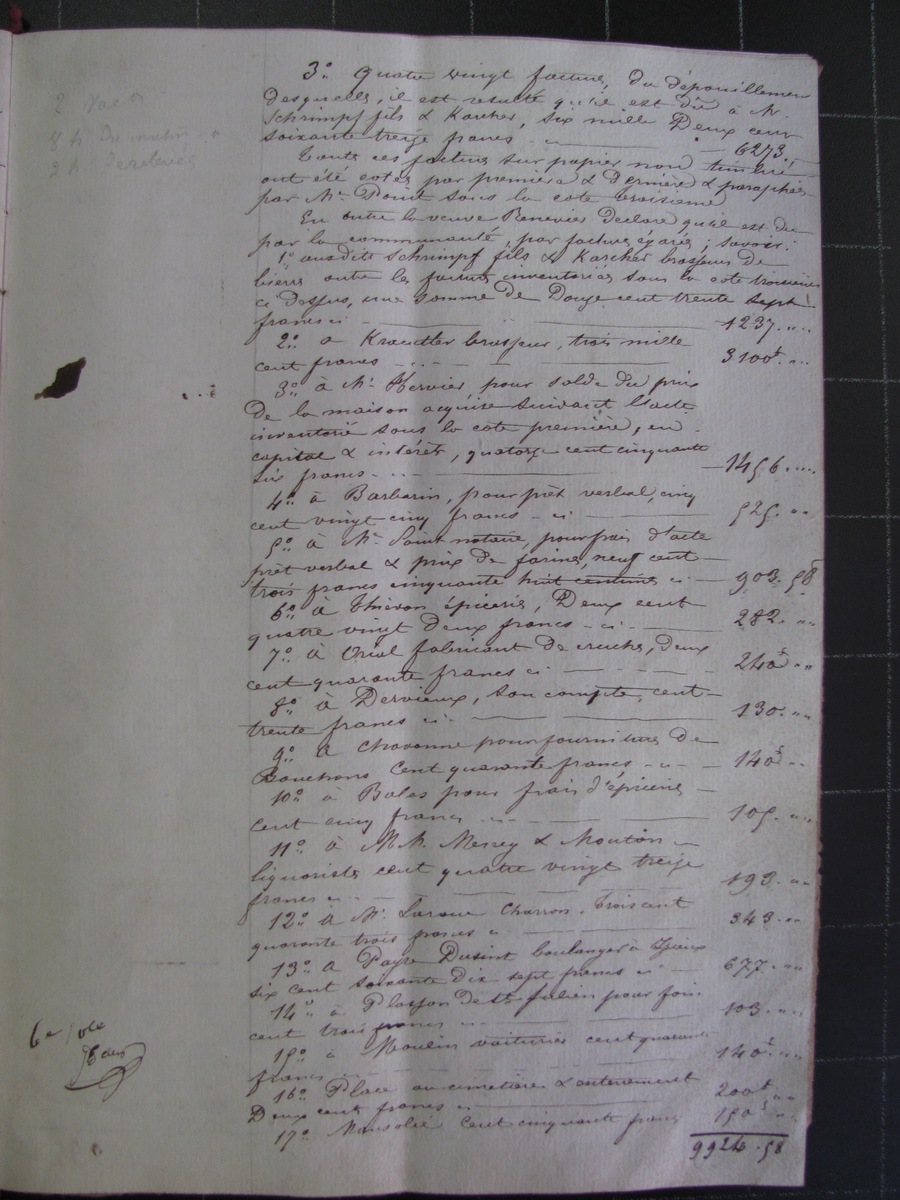 2 Vac on
8 h du matin a
2 h de relevée
3o. Quatre vingt factures, du dépouillement
desquelles, il est resulté qu'il est dû à M.
Schrimpf fils & Karcher, six mille Deux cent
soixante treize francs 6273.
Toutes ces factures sur papier non timbré
ont été cotées par première & Dernière & paraphées
par Me. Point sous la cote troisième
En outre la veuve Ranevier Déclare qu'il est du
par la communauté, par factures égarées; savoir:
1o auxdits Schrimpf fils & Karcher brasseurs de
bierre outre les factures inventoriées sous la cote troisième
ci dessus, une somme de Douze cent trente sept
francs ci 1237. "
2o. a Kraeutler brasseur, trois mille
cent francs 3100f. "
3o. à Mr. Hervier, pour solde du prix
De la maison acquise suivant l'acte
inventorié sous la cote première, en
capital & intérêt, quatorze cent cinquante
six francs 1456. "
4o. à Barbarin, pour prêt verbal, cinq
cent vingt cinq francs ci 525. "
5o. à Me. Point notaire, pour frais d'acte
prêt verbal & prix de farine, neuf cent
trois francs cinquante huit centimes ci 903. 58
6o. à Thivon épicerie, Deux cent
quatre vingt deux francs ci 282. "
7o. à Orial fabricant de cruches, deux
cent quarante francs ci 240f "
8o. à Dervieux, son compte, cent
trente francs ci 130. "
9o. à Chavanne pour fournitures de
Bouchons Cent quarante francs 140f "
10o. à Balas pour frais d'épiceries
cent cinq francs 105. "
11o. à MM. Mercy & Mouton
liquoristes cent quatre vingt treize
francs ci 193. "
12o. à Mr. Larave Charron. Trois cent
quarante trois francs ci 343. "
13o. à Payre Dusint boulanger à Izieux
six cent soixante dix sept francs ci 677. "
14o. à Plasson de St Julien pour foin
cent trois francs 103. "
15o. à Moulin voiturier cent quarante
francs 140f. "
16o. Place au cimetière & enterrement
Deux cent francs 200f "
17o. Mausolée Cent cinquante francs 150f "
9924. 58
6e role